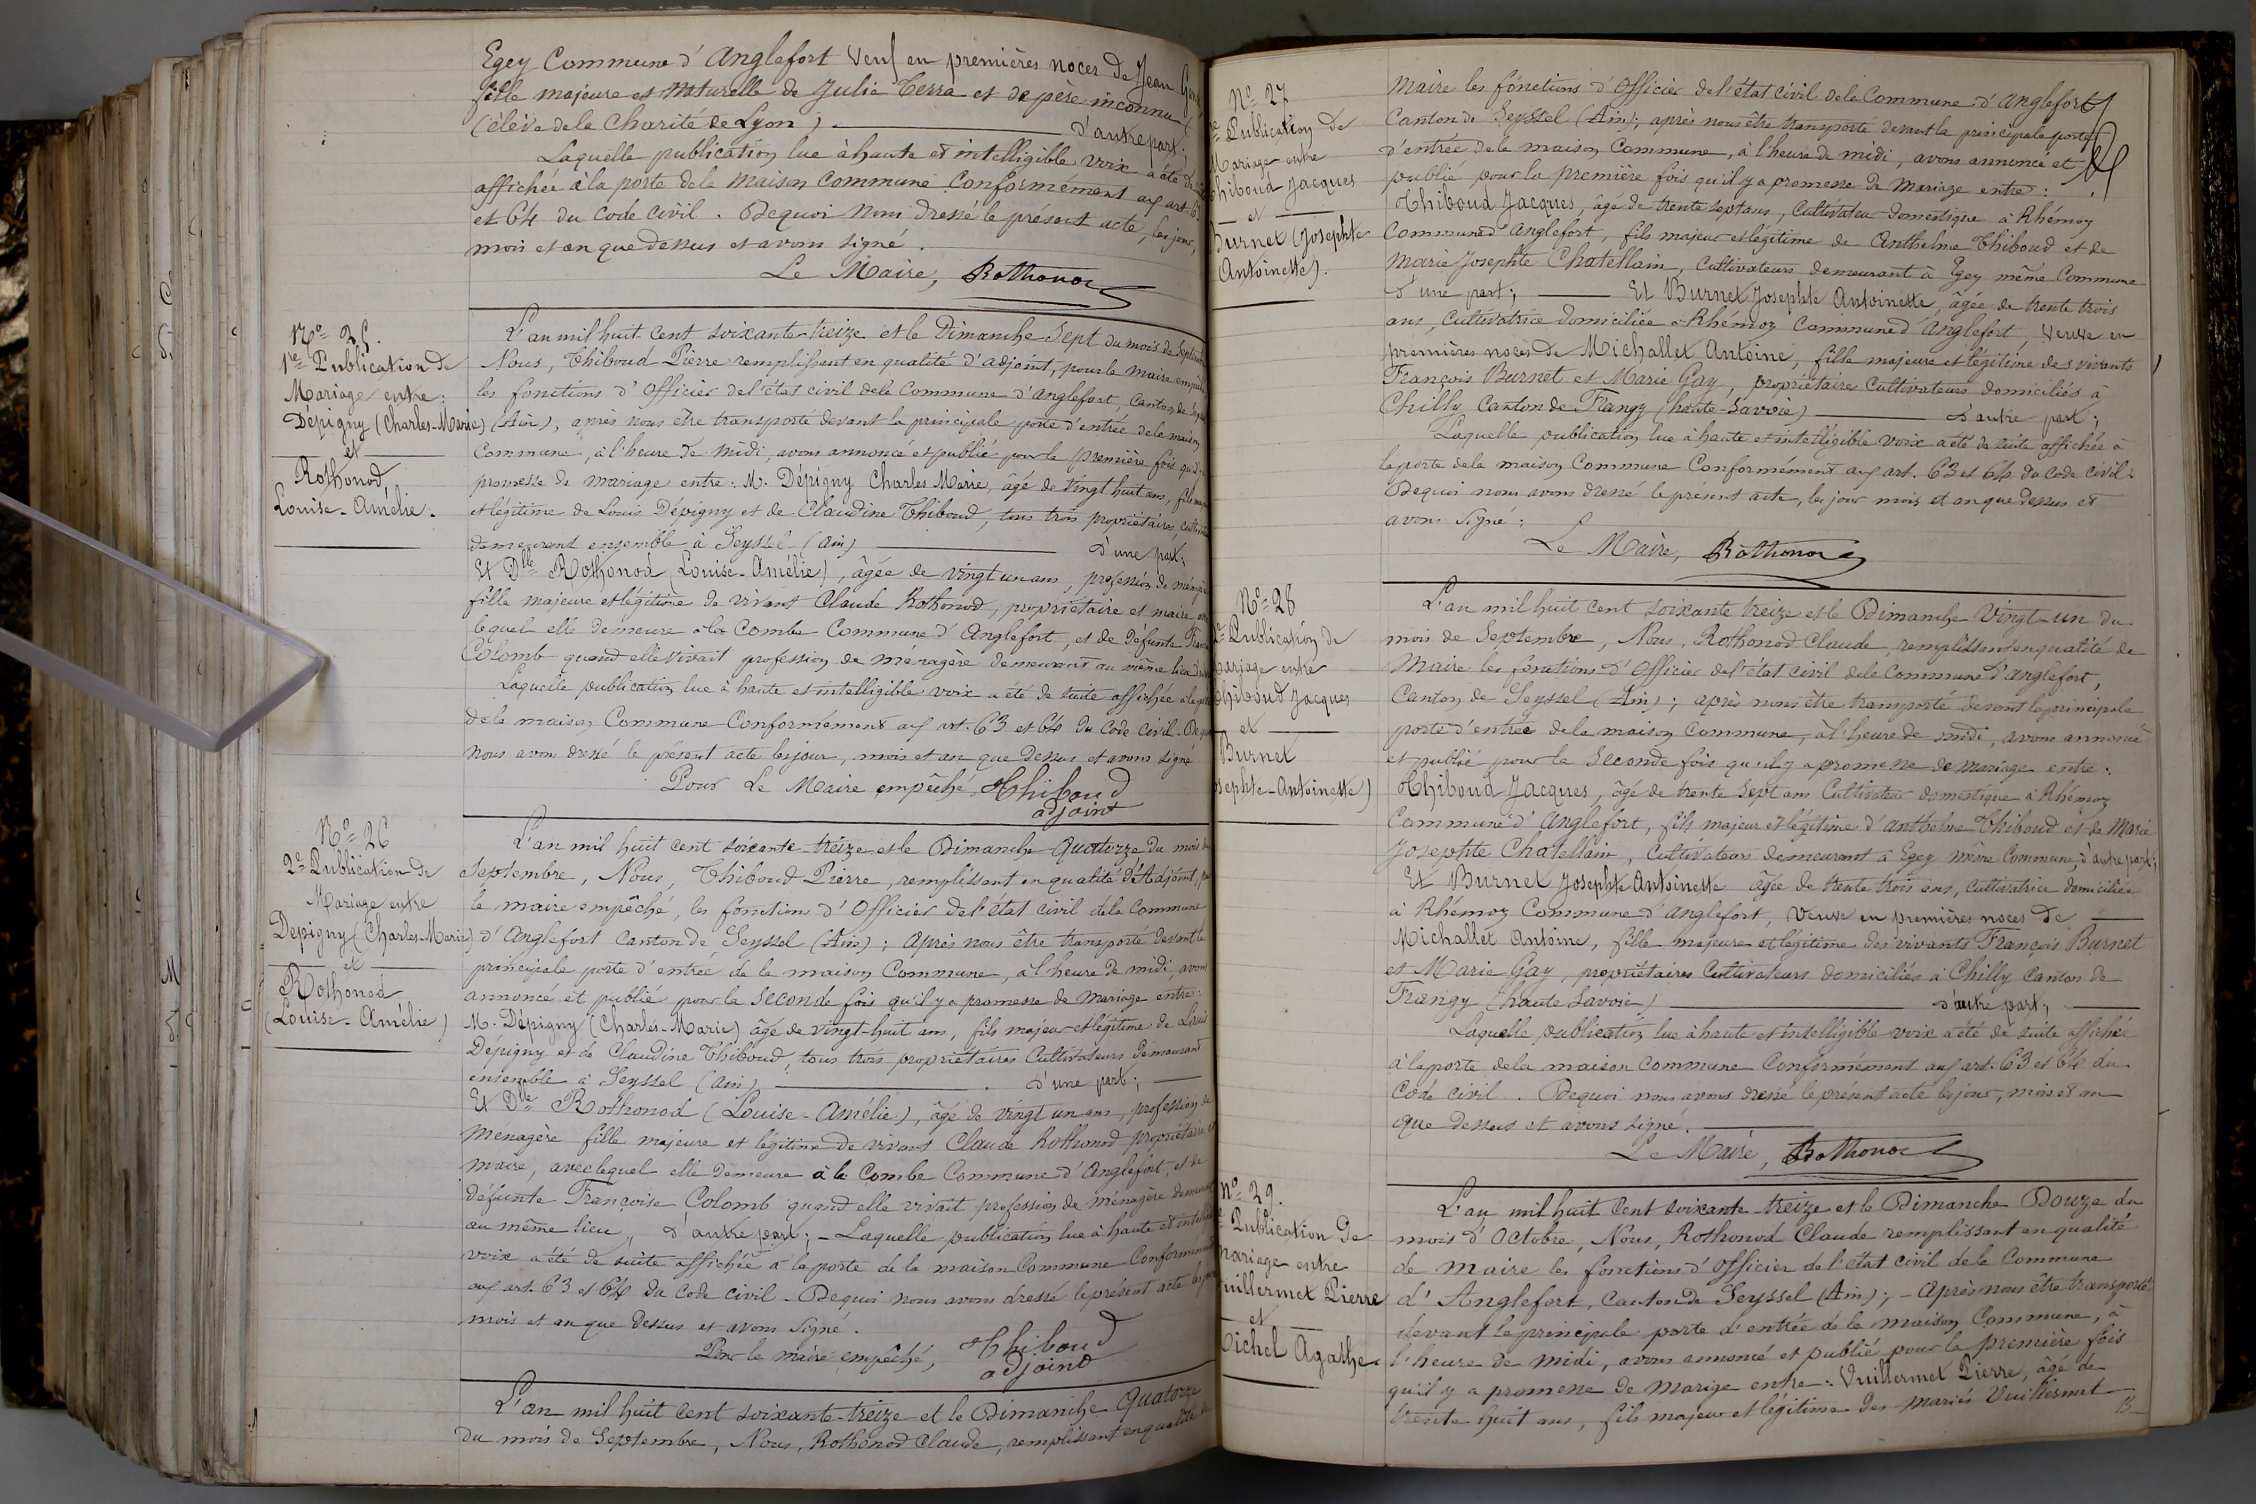 Egey Commune d'Anglefort Veuf en premières noces de Jean
fille majeure et naturelle de Julie Terra et de père inconnu
(élève de la Charité de Lyon) d'autre part;
Laquelle publication lue à haute et intelligible voix a été de
affichée à la porte de la maison commune Conformément aux art. 63
et 64 du Code Civil. De quoi nous dressé le présent acte, les jour,
mois et an que dessus et avons signé.
Le Maire, Rothonod
N° 25.
1re Publication de
Mariage entre:
Dépigny (Charles-Marie)
et
Rothonod,
Louise-Amélie.
L'an mil huit cent soixante-treize et le Dimanche Sept du mois de Septembre
Nous, Thiboud Pierre remplissent en qualité d'adjoint, pour le maire empêché
les fonctions d'Officier de l'état civil de la Commune d'Anglefort, Canton de
(Ain), après nous être transporté devant la principale porte d'entrée de la maison
Commune, à l'heure de midi, avons annoncé et publié pour la première fois qu'il
promesse de mariage entre: M. Dépigny Charles Marie, âgé de vingt huit ans, fils
et légitime de Louis Dépigny et de Claudine Thiboud, tous trois propriétaires,
demeurant ensemble à Seyssel (Ain) d'une part;
Et Dlle Rothonod (Louise-Amélie), âgée de vingt un ans, profession de
fille majeure et légitime de vivant Claude Rothonod, propriétaire et maire
lequel elle demeure à la Combe Commune d'Anglefort, et de Défunte
Colomb quand elle vivait profession de ménagère demeurant au même lieu
Laquelle publication lue à haute et intelligible voix a été de suite affichée à la
de la maison Commune Conformément aux art. 63 et 64 du Code civil. De
nous avons dressé le présent acte les jour, mois et an que dessus et avons signé
Pour Le Maire empêché, Thiboud
adjoint
N° 26
2e Publication de
Mariage entre
Dépigny (Charles-Marie)
et
Rothonod
(Louise-Amélie)
L'an mil huit cent soixante-treize et le Dimanche Quatorze du mois
Septembre, Nous, Thiboud Pierre, remplissant en qualité d'Adjoint,
le maire empêché, les fonctions d'Officier de l'état civil de la Commune
d'Anglefort Canton de Seyssel (Ain); après nous être transporté devant la
principale porte d'entrée de la maison Commune, à l'heure de midi, avons
annoncé et publié pour la seconde fois qu'il y a promesse de mariage entre:
M. Dépigny (Charles-Marie) âgé de vingt-huit ans, fils majeur et légitime de Louis
Dépigny et de Claudine Thiboud, tous trois propriétaires Cultivateurs demeurant
ensemble à Seyssel (Ain) d'une part;
Et Dlle Rothonod (Louise-Amélie), âgé de vingt un ans, profession de
menagère fille majeure et légitime de vivant Claude Rothonod propriétaire et
maire, avec lequel elle demeure à la Combe Commune d'Anglefort, et de
défunte Françoise Colomb quand elle vivait profession de ménagère demeurant
au même lieu, d'autre part;- Laquelle publication lue à haute et
voix a été de suite affichée à la porte de la maison Commune Conformément
aux art. 63 et 64 du Code civil - De quoi nous avons dressé le présent acte les
mois et an que dessus et avons signé.
Pour le maire empêché, Thiboud
adjoint
L'an mil huit cent soixante-treize et le Dimanche Quatorze
du mois de Septembre, Nous, Rothonod Claude, remplissant en qualité de
N° 27
Publication de
Mariage entre
Thiboud Jacques
et
Burnet (Josephte
Antoinette).
Maire les fonctions d'Officier de l'état civil de la Commune d'Anglefort
Canton de Seyssel (Ain); après nous être transporté devant la principale porte
d'entrée de la maison Commune, à l'heure de midi, avons annoncé et
publié pour la première fois qu'il y a promesse de mariage entre:
Thiboud Jacques, âgé de trente sept ans, Cultivateur domestique à Rhémoz
Commune d'Anglefort, fils majeur et légitime de Anthelme Thiboud et de
Marie Josephte Chatellain, Cultivateurs demeurant à Egey même Commune
d'une part; Et Burnet Josephte Antoinette, âgée de trente trois
ans, Cultivatrice domiciliée à Rhémoz Commune d'Anglefort, veuve en
premières noces de Michallet Antoine, fille majeure et légitime des vivants
François Burnet et Marie Gay, propriétaire Cultivateurs domiciliés à
Chilly, Canton de Frangy (haute-Savoie) d'autre part;
Laquelle publication lue à haute et intelligible voix a été de suite affichée à
la porte de la maison Commune Conformément aux art. 63 et 64 du Code civil.
De quoi nous avons dressé le présent acte, les jour mois et an que dessus et
avons signé:
Le Maire, Rothonod
N° 28
2e Publication de
Mariage entre
Thiboud Jacques
et
Burnet
Josephte-Antoinette)
L'an mil huit cent soixante treize et le Dimanche Vingt-un du
mois de Septembre, Nous, Rothonod Claude, remplissant en qualité de
Maire les fonctions d'Officier de l'état civil de la Commune d'Anglefort,
Canton de Seyssel (Ain); après nous être transporté devant la principale
porte d'entrée de la maison Commune, à l'heure de midi, avons annoncé
et publié pour la seconde fois qu'il y a promesse de mariage entre:
Thiboud Jacques, âgé de trente sept ans Cultivateur domestique à Rhémoz
Commune d'Anglefort, fils majeur et légitime d'Anthelme Thiboud et de Marie
Josephte Chatellain, Cultivateurs demeurant à Egey même Commune, d'autre part;
Et Burnet Josephte Antoinette âgée de trente trois ans, cultivatrice domiciliée
à Rhémoz Commune d'Anglefort, Veuve en premières noces de
Michallet Antoine, fille majeure et légitime des vivants François Burnet
et Marie Gay, propriétaires Cultivateurs domiciliés à Chilly Canton de
Frangy (haute Savoie) d'autre part;
Laquelle publication lue à haute et intelligible voix a été de suite affichée
à la porte de la maison commune Conformément aux art. 63 et 64 du
Code civil. De quoi nous avons dressé le présent acte les jour, mois et an
que dessus et avons signé.
Le Maire, Rothonod
N° 29.
Publication de
Mariage entre
Vuillermet Pierre
et
Michel Agathe
L'an mil huit Cent soixante-treize et le Dimanche Douze du
mois d'Octobre, Nous, Rothonod Claude remplissant en qualité
de maire les fonctions d'Officier de l'état civil de la Commune
d'Anglefort, Canton de Seyssel (Ain); - Après nous être transporté
devant la principale porte d'entrée de la maison Commune, à
l'heure de midi, avons annoncé et publié pour la première fois
qu'il y a promesse de marige entre: Vuillermet Pierre, âgé de
trente huit ans, fils majeur et légitime des mariés Vuillermet